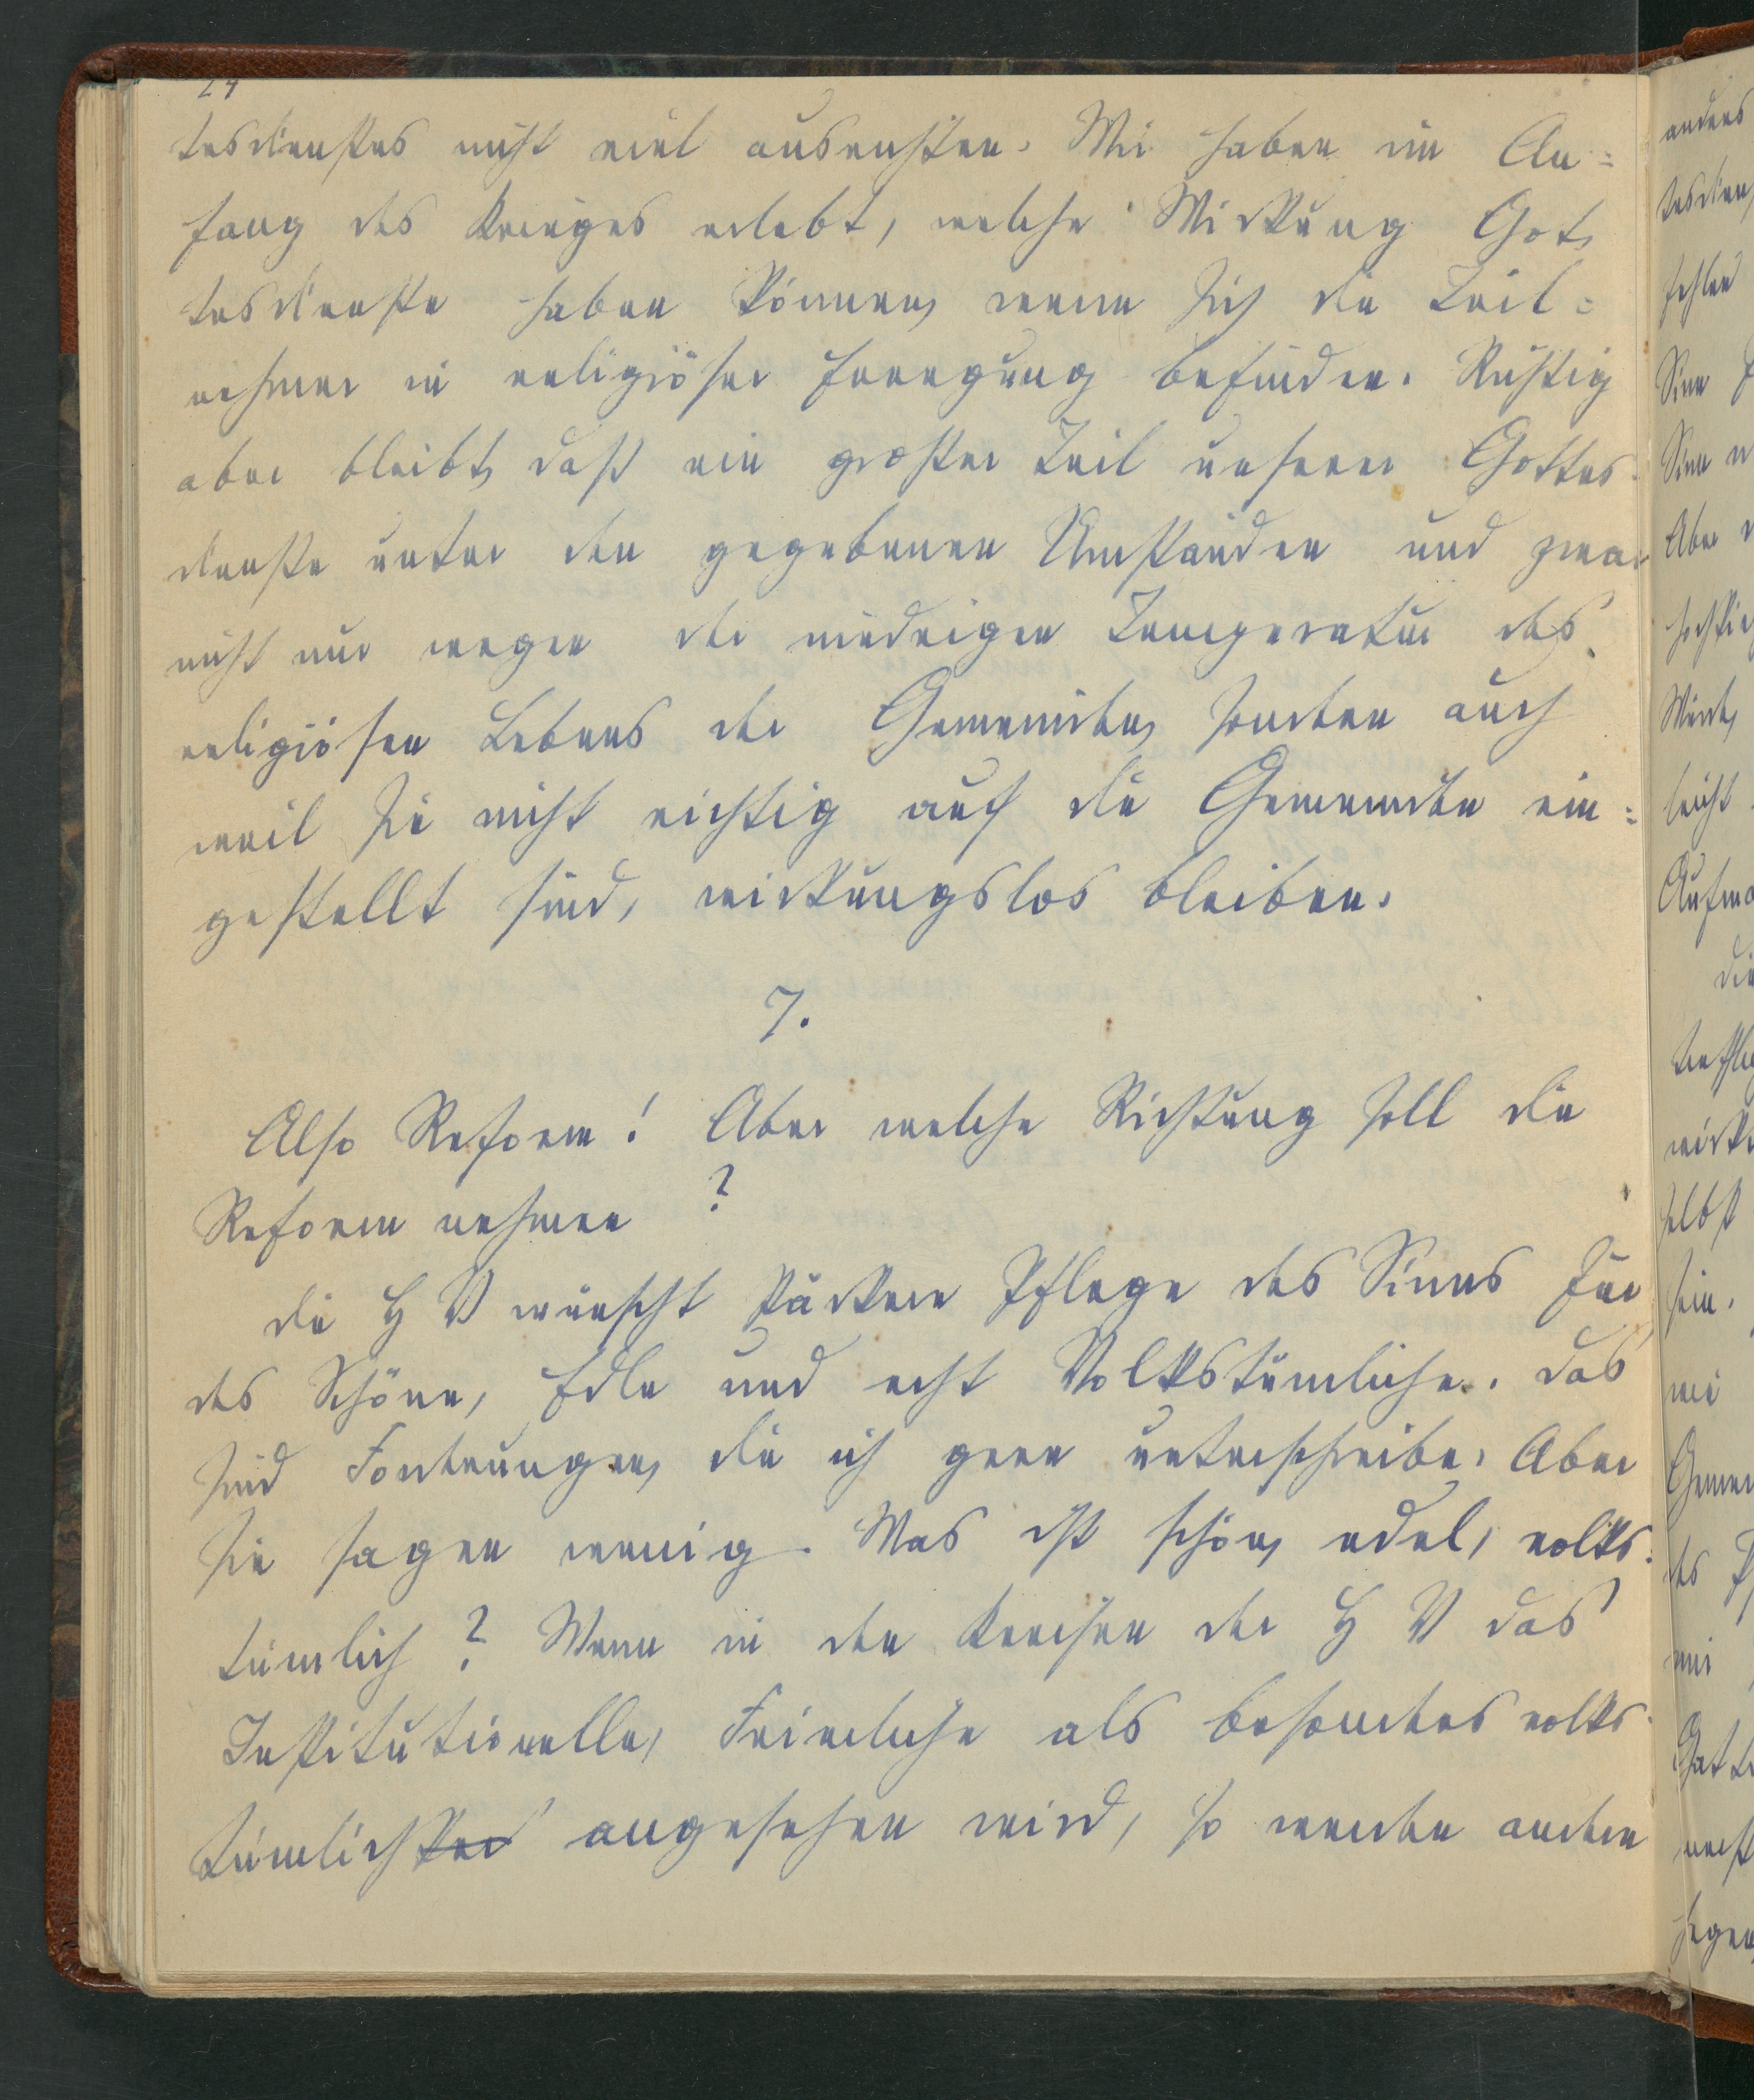 24
tesdienstes nicht viel ausrichten. Wir haben im An=
fang des Krieges erlebt, welche Wirkung Got,
tesdienste haben können, wenn sich die Teil=
nehmer in religiöser Erregung befinden. Richtig
aber bleibt, daß ein großer Teil unserer Gottes-
dienste unter den gegebenen Umständen und zwar
nicht nur wegen der niedrigen Temperatur des
religiösen Lebens der Gemeinde, sondern auch
weil sie nicht richtig auf die Gemeinde ein=
gestellt sind, wirkungslos bleiben.
7.
Also Reform! Aber welche Richtung soll die
Reform nehmen?
die H V wünscht stärkere Pflege des Sinnes für
des Schöne, Edle und echt Volkstümliche. das
sind Forderungen, die ich gern unterschreibe. Aber
sie sagen wenig. Was ist schön, edel, volks-
tümlich? Wenn in den Kreisen der H V das
Institutionelle, Feierliche als besonders volks-
tümlich angesehen wird, so werden andere
anders
tesdien
fehlen
Sinn
Sinn
Aber
Wert,
leicht
Aufma
die
wirk
selbst
sein.
wie
Gemei
des
mir
Gott